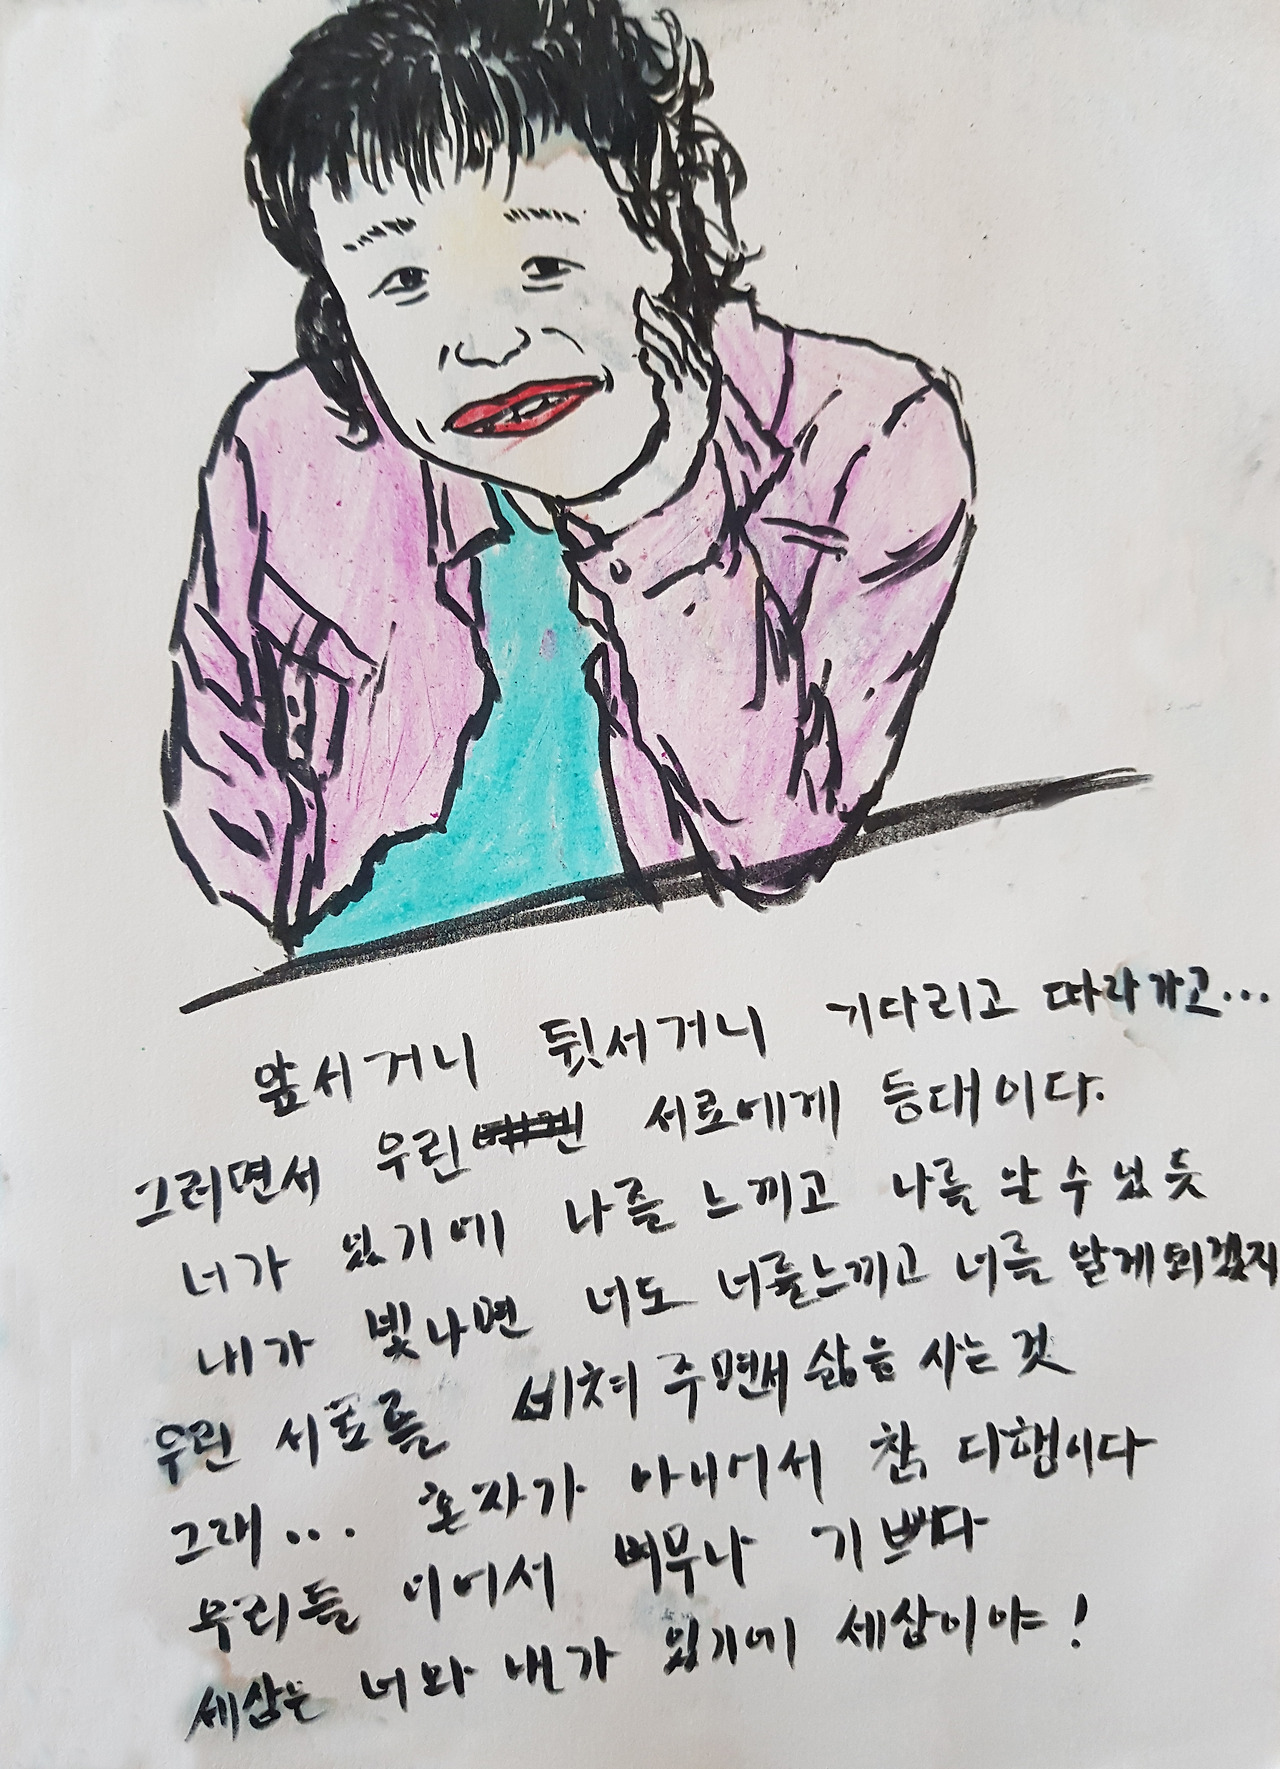 앞서거니 뒷서거니 기다리고 따라가고...
그러면서 우린 서로에게 등대이다.
너가 있기에 나를 느끼고 나를 알 수 있듯
내가 빛나면 너도 너를 느끼고 너를 알게 되겠지
우린 서로를 비쳐 주면서 삶을 사는 것
그래... 혼자가 아니어서 참 다행이다
우리들 이어서 너무나 기쁘다
세상은 너와 내가 있기에 세상이야!